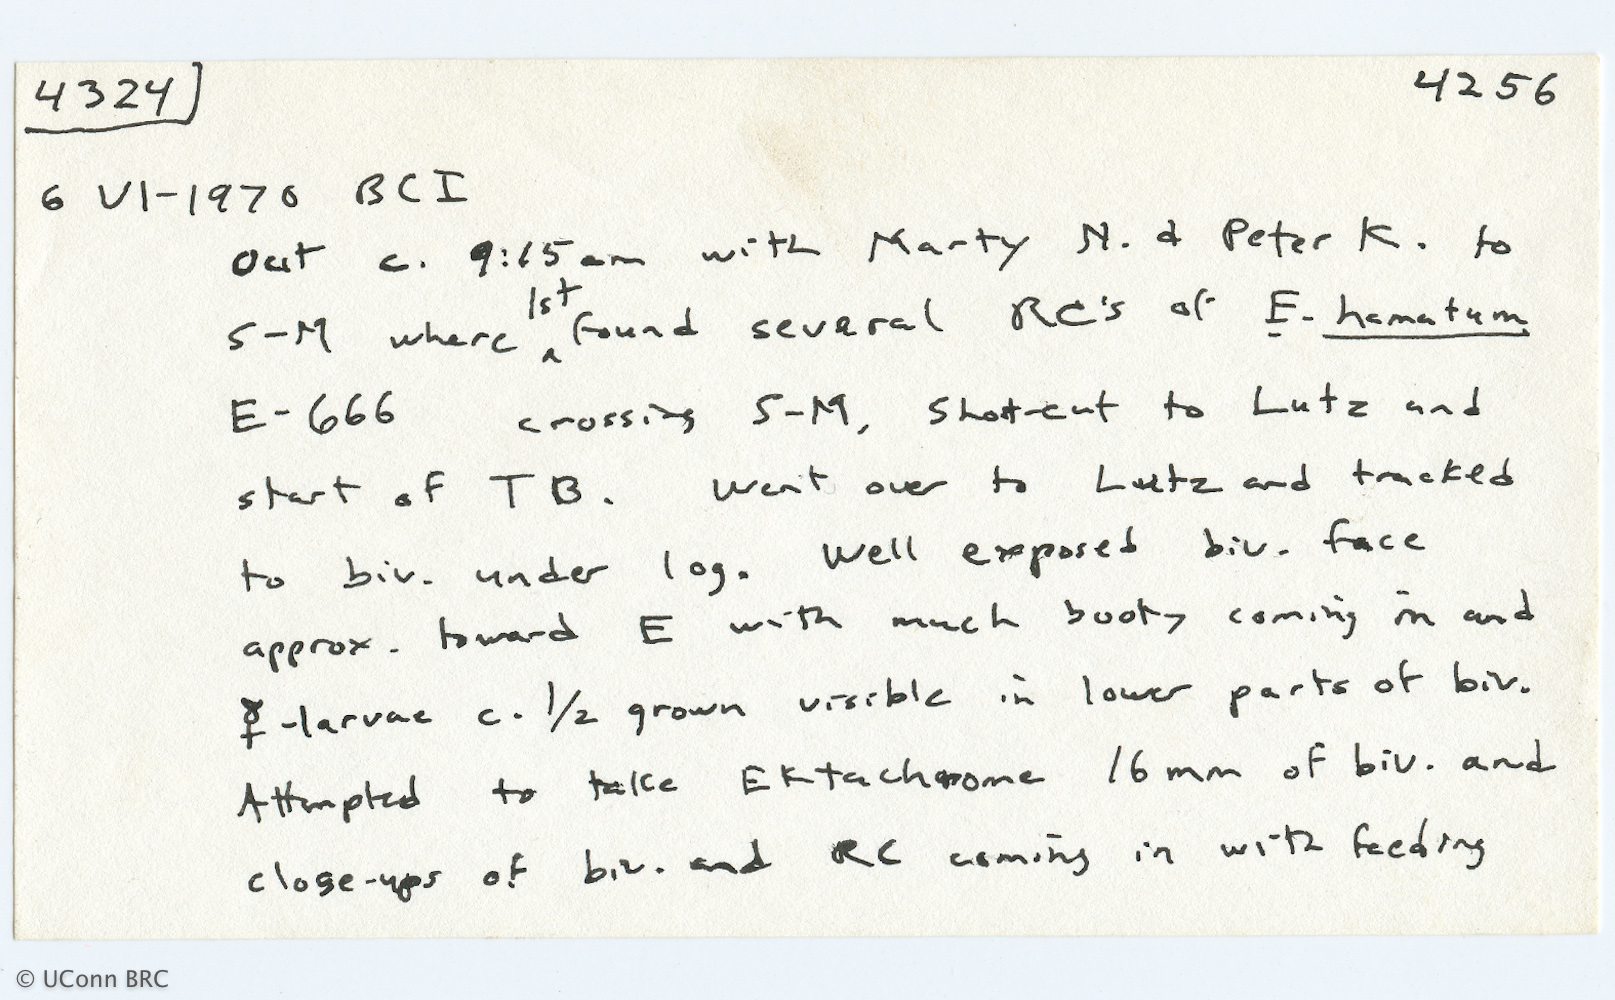 4324] 4256
6 VI-1970 BCI
out c. 9:15am with Marty N. & Peter K. to
S-M where 1st found several RC's of E. hamatum
E-666 crossing S-M, short-cut to Lutz and
start of TB. Went over to Lutz and tracked
to biv. under log. Well exposed biv. face
approx. toward E with much booty coming in and
☿-larvae c. 1/2 grown visible in lower parts of biv.
Attempted to take Ektachrome 16mm of biv. and
close-ups of biv. and RC coming in with feeding
© UConn BRC